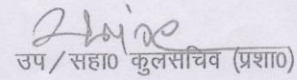 उप/सहा0 कुलसचिव (प्रशा0)